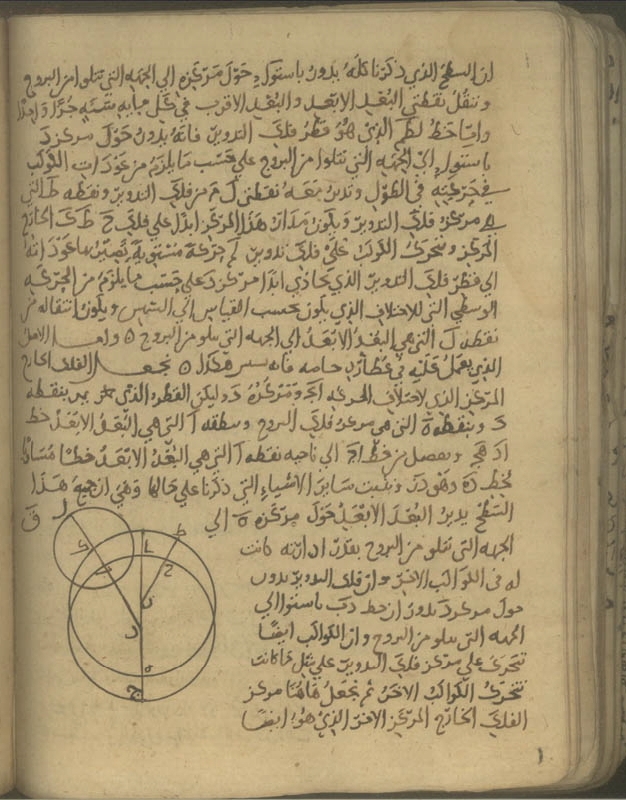 ان السطح الذي ذكرنا كله يدور باستواء حول مركزه الى الجهه التي تتلوا من البروج
وتنقل نقطتي البعد الابعد والبعد الاقرب في كل مايه سنه جزا واحدا
واما خط القطر الذي هو قطر فلك التدوير فانه يدور حول مركز د
باستواء الى الجهه التي تتلوا من البروج على حسب ما يلزم من عودات الكواكب
في حركته في الطول وتدير معه نقطتي ل م من فلك التدوير ونقطه ط التي
هي مركز فلك التدوير ويكون مدار هذا المركز ابدا على فلك ح ط ك الخارج
المركز ويتحرك الكوكب على فلك تدوير ل م حركة مستوية تصير بها عوداته
الى قطر فلك التدوير الذي يحاذي ابدا مركز د على حسب ما يلزم من الحركه
الوسطى التي للاختلاف الذي يكون بحسب القياس الى الشمس ويكون انتقاله من
نقطه ل التي هي البعد الابعد الى الجهه التي تتلو من البروج ه واما الاصل
الذي يعمل عليه في عطارد خاصه فانه هكذا ه نجعل الفلك الخارج
المركز الذي لاختلاف الحركه ا ب ج ومركزه د وليكن القطر الذي يمر بنقطه
د وبنقطه ه التي هي مركز فلك البروج وبنقطه ا التي هي البعد الابعد خط
ا د ه ج ونفصل من خط ا ج الى ناحيه نقطه ا التي هي البعد الابعد خطا مساويا
لخط د ه وهو د ز ونثبت ساير الاشياء التي ذكرنا على حالها وهي ان جميع هذا
السطح يدير البعد الابعد حول مركزه ه الى
الجهه التي تتلو من البروج بقدر ادارته كانت
له في الكواكب الاخر وان فلك التدوير يدور
حول مركز د بدوران خط د ب باستوا الى
الجهه التي تتلو من البروج وان الكواكب ايضا
تتحرك على مركز فلك التدوير على مثل ما كانت
تتحرك الكواكب الاخر ثم نجعل هاهنا مركز
الفلك الخارج المركز الاخر الذي هو ايضا